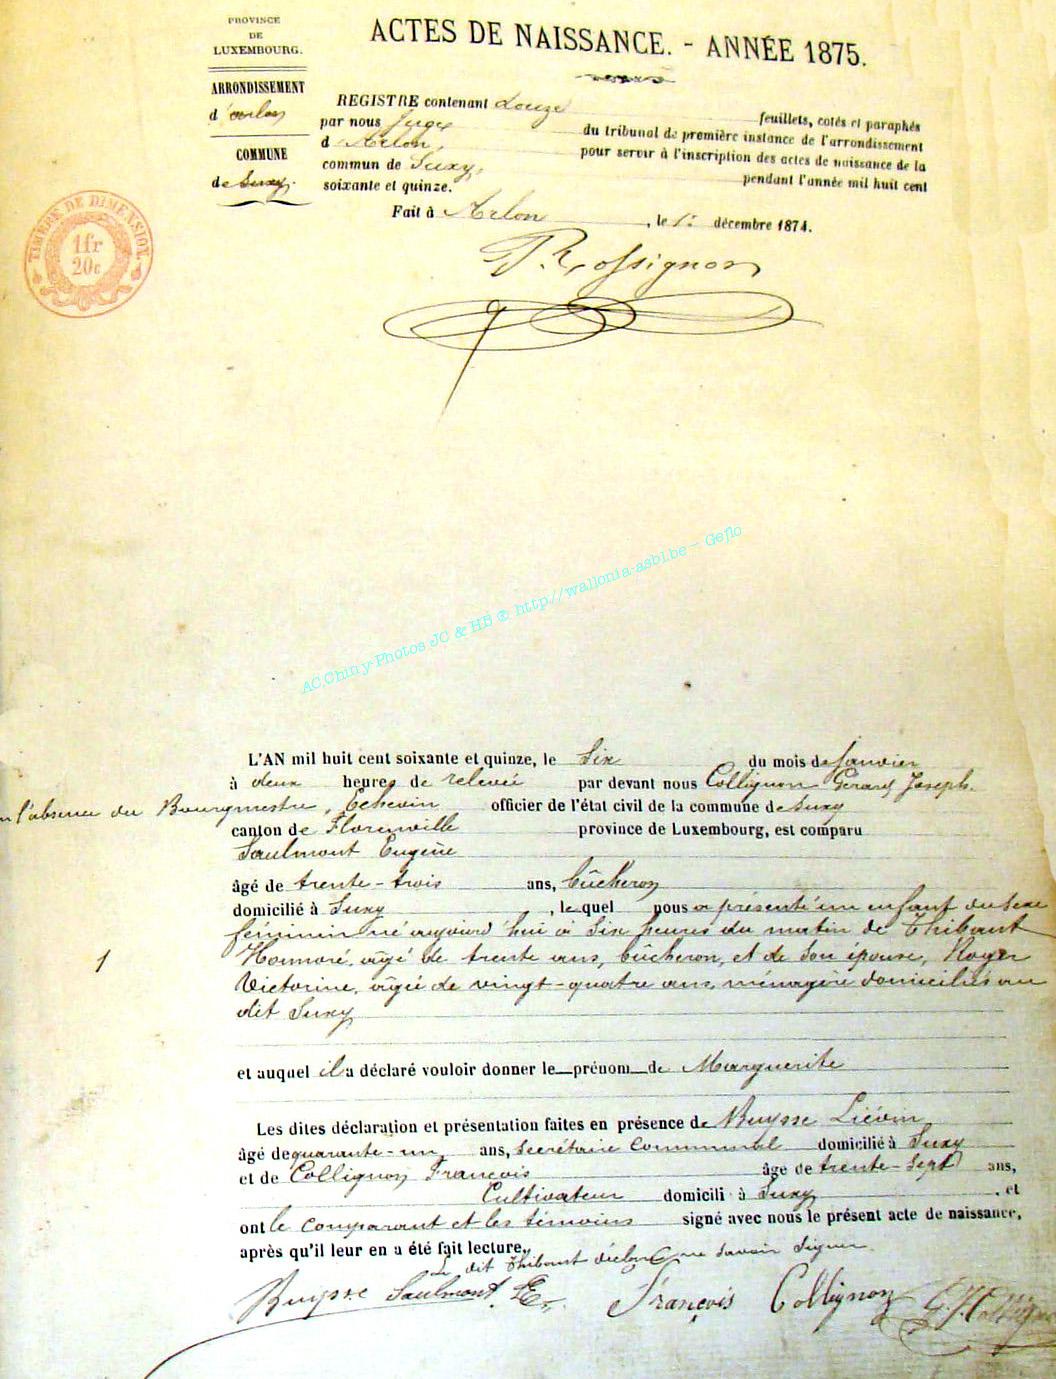 PROVINCE
DE
LUXEMBOURG.
ARRONDISSEMENT
d'Arlon
COMMUNE
de Suxy.
TIMBRE DE DIMENSION
1fr
20c
ACTES DE NAISSANCE. - ANNÉE 1875.
REGISTRE contenant Douze feuillets, cotés et paraphés
par nous Juge du tribunal de première instance de l'arrondissement
d Arlon, pour servir à l'inscription des actes de naissance de la
commun de Suxy, pendant l'année mil huit cent
soixante et quinze.
Fait à Arlon, le 1er décembre 1874.
P. Rossignon
AC.Chiny-Photos JC & HB @ http://wallonia-asbl.be - Geflo
L'AN mil huit cent soixante et quinze, le Six du mois de Janvier
à deux heures de relevée par devant nous Collignon Gérard Joseph.
en l'absence du Bourgmestre, Echevin officier de l'état civil de la commune de Suxy
canton de Florenville province de Luxembourg, est comparu
Saulmont Eugène
âgé de trente-trois ans, bûcheron
domicilié à Suxy, lequel nous a présenté un enfant du sexe
féminin né aujourd'hui à six heures du matin de Thibaut
1
Honnoré, âgé de trente ans, bûcheron, et de son épouse, Noger
Victorine, âgée de vingt-quatre ans, ménagère domiciliés au
dit Suxy
et auquel il a déclaré vouloir donner le prénom de Marguerite
Les dites déclaration et présentation faites en présence de Buysse Liévin
âgé de quarante-un ans, secrétaire communal domicilié à Suxy
et de Collignon François âgé de trente-sept ans,
Cultivateur domicili à Suxy, et
ont le comparant et les témoins signé avec nous le présent acte de naissance,
après qu'il leur en a été fait lecture.
Le dit Thibaut déclare ne savoir signer.
Buysse Saulmont E. François Collignon G. J. Collignon